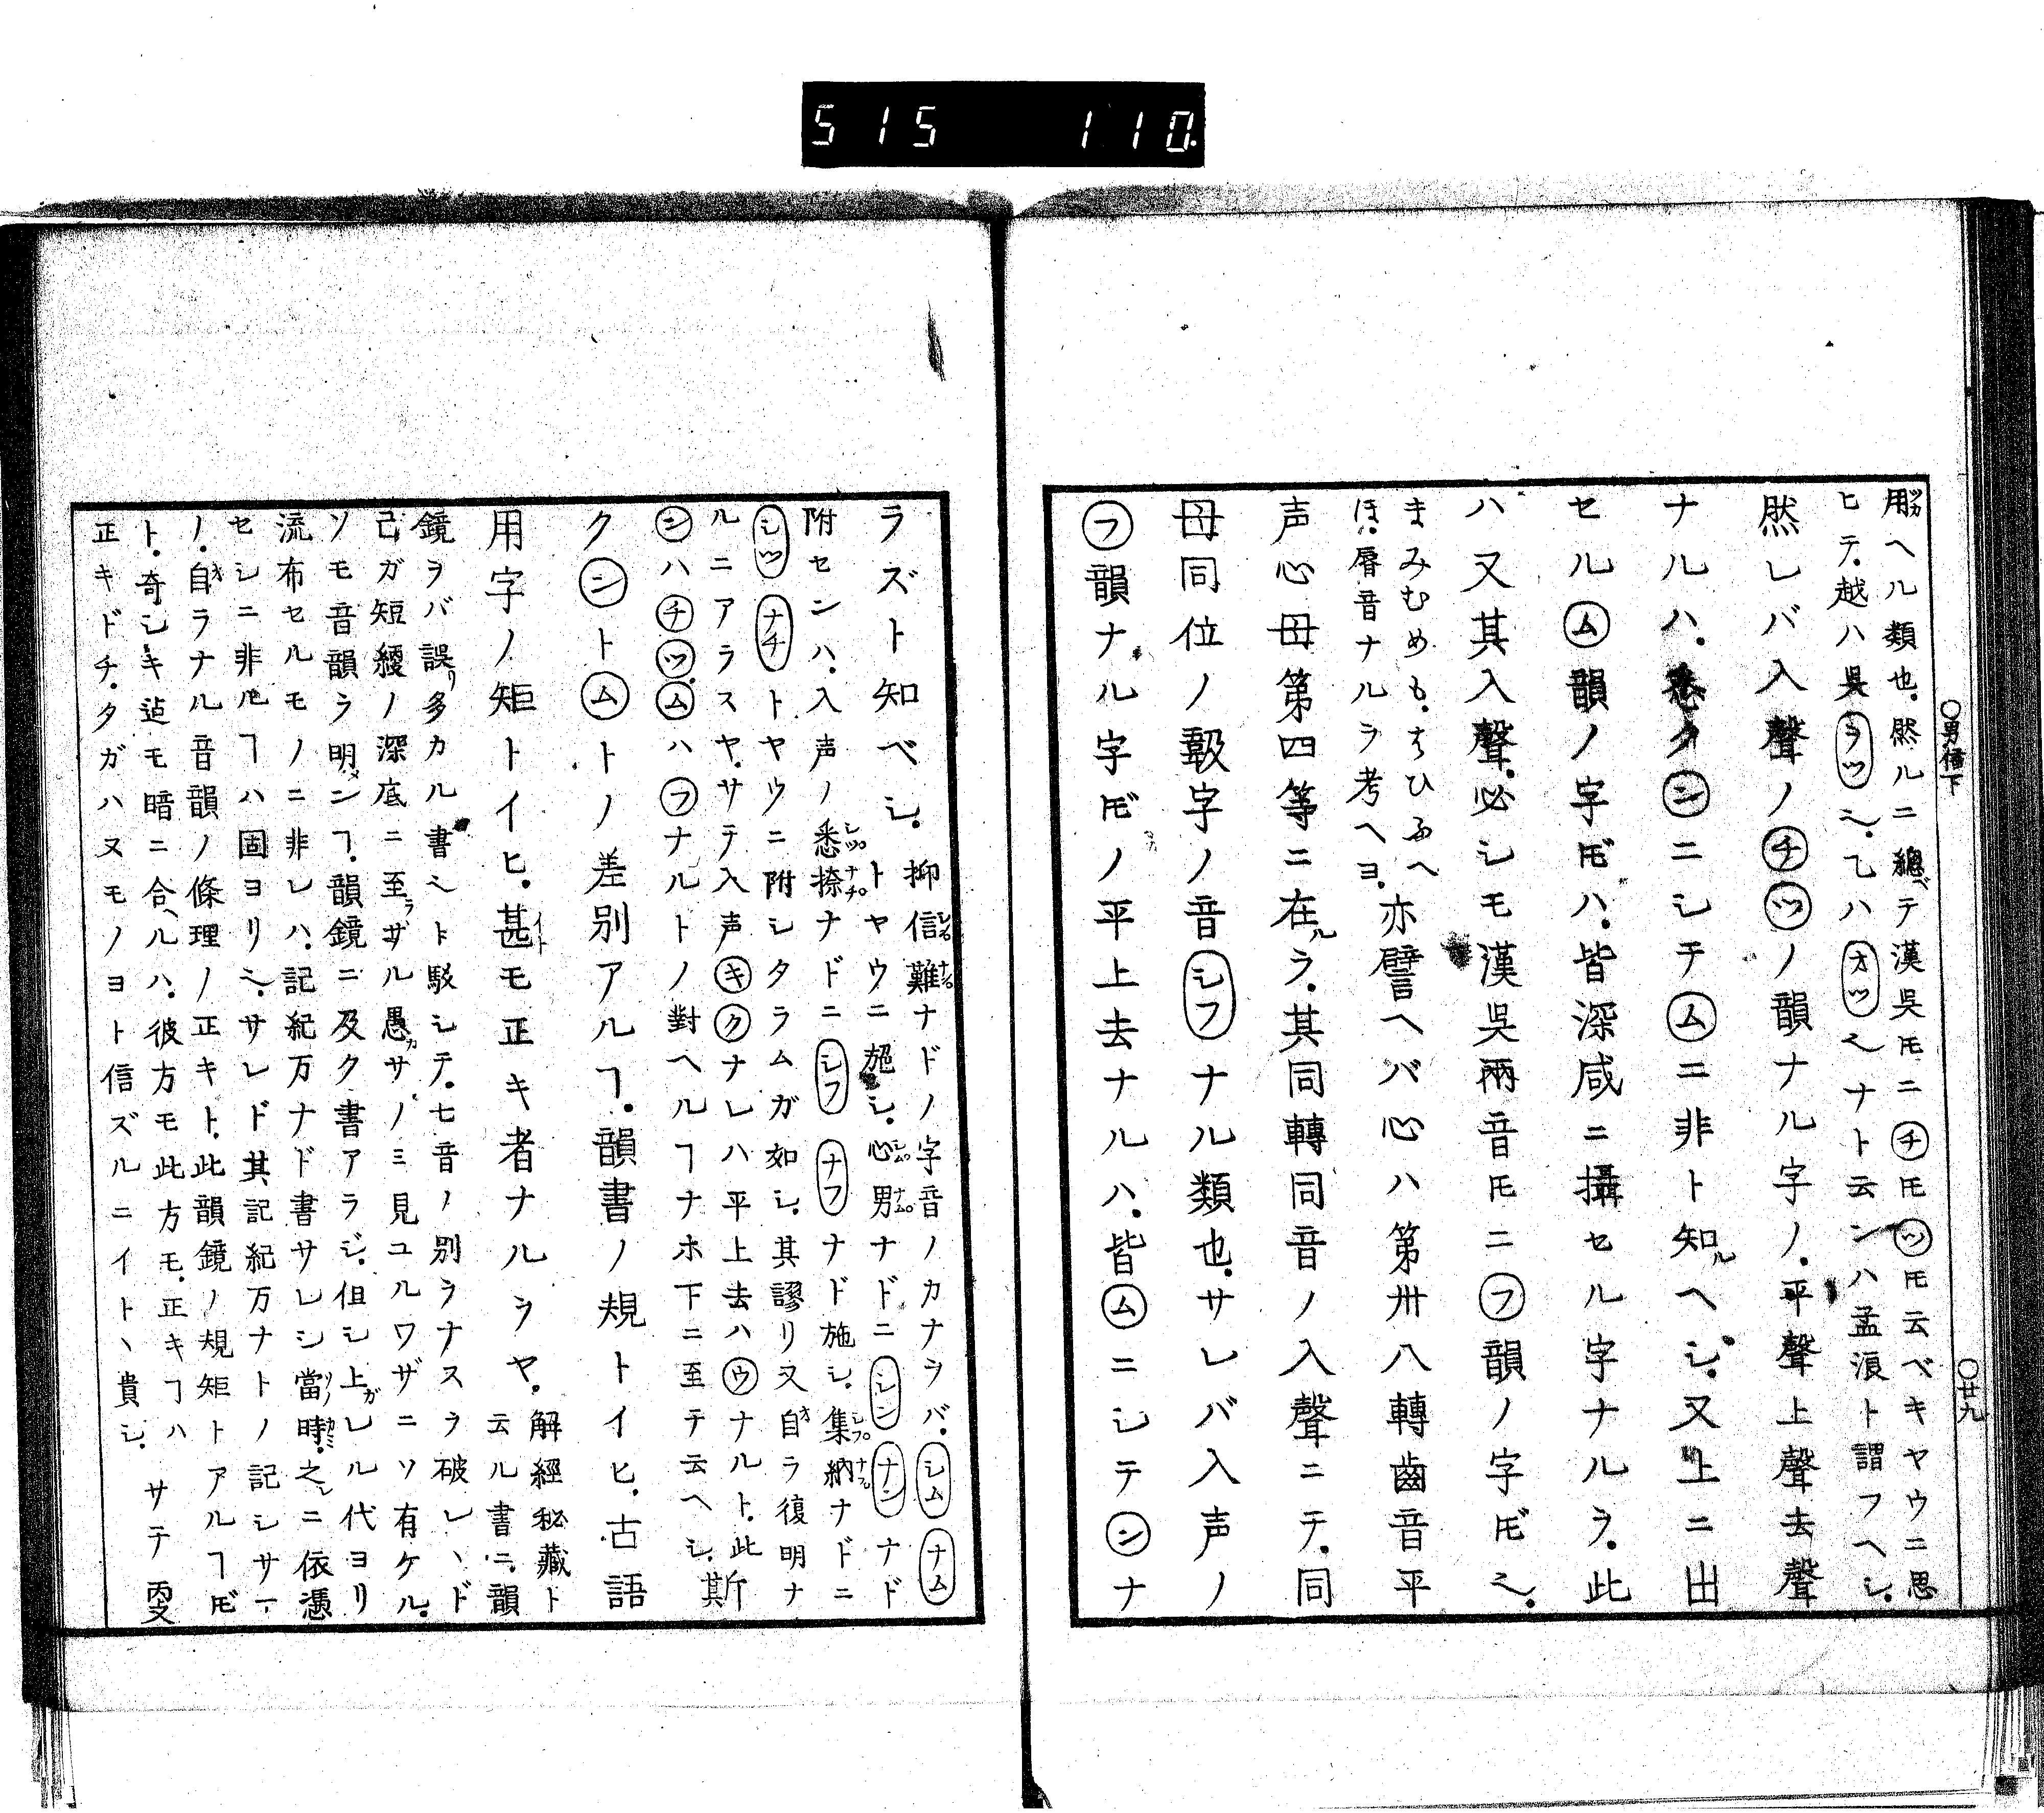 515 110
○男信下
○廿九
用ヘル類也．然ルニ總テ漢呉𪜈ニチ𪜈ツ𪜈云ベキヤウニ思
ヒテ．越ハ呉ヲツ也．乙ハオツ也ナト云ンハ孟浪ト謂フヘシ．
然レバ入聲ノチツノ韻ナル字ノ．平聲上聲去聲
ナルハ．悉クンニシテムニ非ト知ルヘシ．又上ニ出
セルム韻ノ字𪜈ハ．皆深咸ニ攝セル字ナルヲ．此
ハ又其入聲．必シモ漢呉兩音𪜈ニフ韻ノ字𪜈也．
まみむめも．はひふへ
ほ．脣音ナルヲ考ヘヨ．亦譬ヘバ心ハ第卅八轉齒音平
声心母第四等ニ在ルヲ．其同轉同音ノ入聲ニテ．同
母同位ノ字ノ音シフナル類也．サレバ入声ノ
フ韻ナル字𪜈ノ平上去ナルハ．皆ムニシテンナ
ラズト知ベシ．抑信難ナドノ字音ノカナヲバ．シムナム
トヤウニ施シ．心男ナドニシンナンナド
附センハ．入声ノ悉捺ナドニシフナフナド施シ．集納ナドニ
シツナチトヤウニ附シタラムガ如シ．其謬リ又自ラ復明ナ
ルニアラスヤ．サテ入声キクナレハ平上去ハウナルト．此
ンハチツ．ムハフナルトノ對ヘルヿナホ下ニ至テ云ヘシ．斯
クントムトノ差別アルヿ．韻書ノ規トイヒ．古語
用字ノ矩トイヒ．甚モ正キ者ナルヲヤ．解經秘藏ト
云ル書ニ．韻
鏡ヲバ誤リ多カル書也ト駁シテ．七音ノ別ヲナスヲ破レヽド
己ガ短綆ノ深底ニ至ラザル愚サノミ見ユルワザニソ有ケル．
ソモ音韻ヲ明メンヿ．韻鏡ニ及ク書アラジ．但シ上ガレル代ヨリ
流布セルモノニ非レハ．記紀万ナド書サレシ當時．之ニ依憑
セシニ非ルヿハ固ヨリ也．サレド其記紀万ナトノ記シサマ
ノ．自ラナル音韻ノ條理ノ正キト．此韻鏡ノ規矩トアルヿ𪜈
ト．奇シキ迠モ暗ニ合ヘルハ．彼方モ此方モ．正キヿハ
正キドチ．タガハヌモノヨト信ズルニイトヽ貴シ．サテ